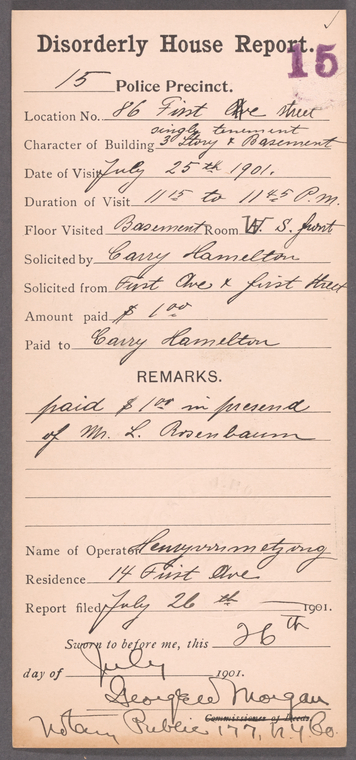 Disorderly House Report.
15
15 Police Precinct.
Location No. 86 First Ave street
single tenement
Character of Building 3 Story & Basement
Date of Visit July 25th 1901.
Duration of Visit 11 15 to 11 45 P.M.
Floor Visited Basement Room W. S. front
Solicited by Carry Hamelton
Solicited from First Ave & first Street
Amount paid $ 1 00
Paid to Carry Hamelton
REMARKS.
paid $ 1 00 in presend
of Mr. L. Rosenbaum
Name of Operator
Residence 14 First Ave
Report filed July 26th 1901.
Sworn to before me, this 26th
day of July 1901.
George W Morgan
Commissioner of Deeds
Notary Public 177, N.Y. Co.